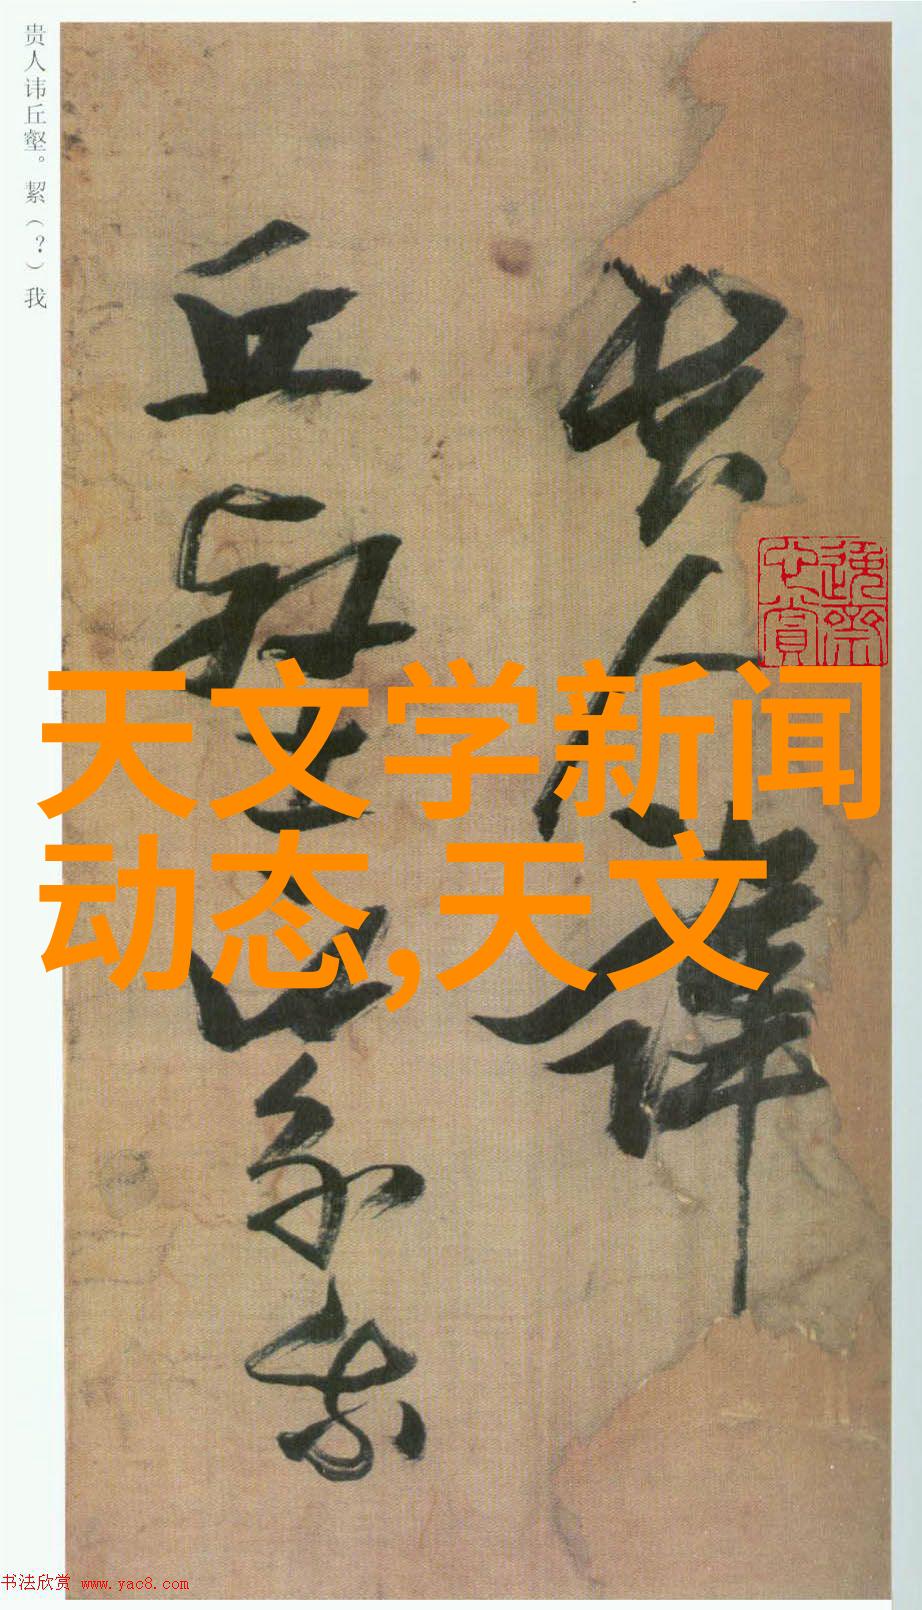 贵人讳丘壑。絜（？）我
贵人讳
丘壑
絜我
天文学新闻
动态,天文
书法欣赏 www.yac8.com